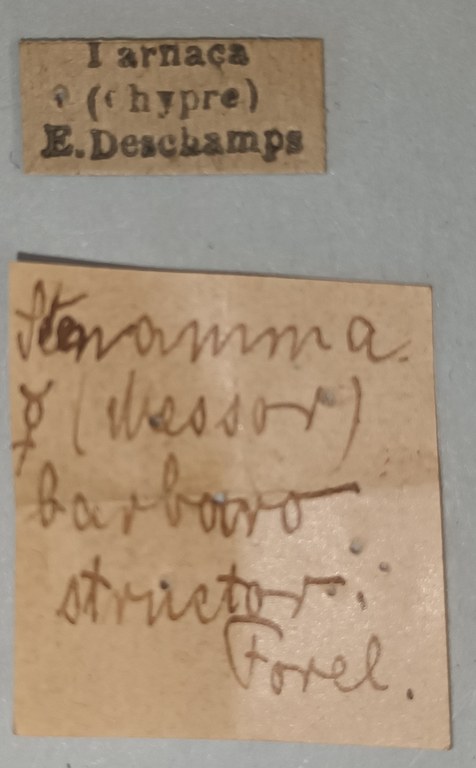 Larnaca
(Chypre)
E. Deschamps
Stenamma.
☿ (Messor)
barbaro
structor.
Forel.